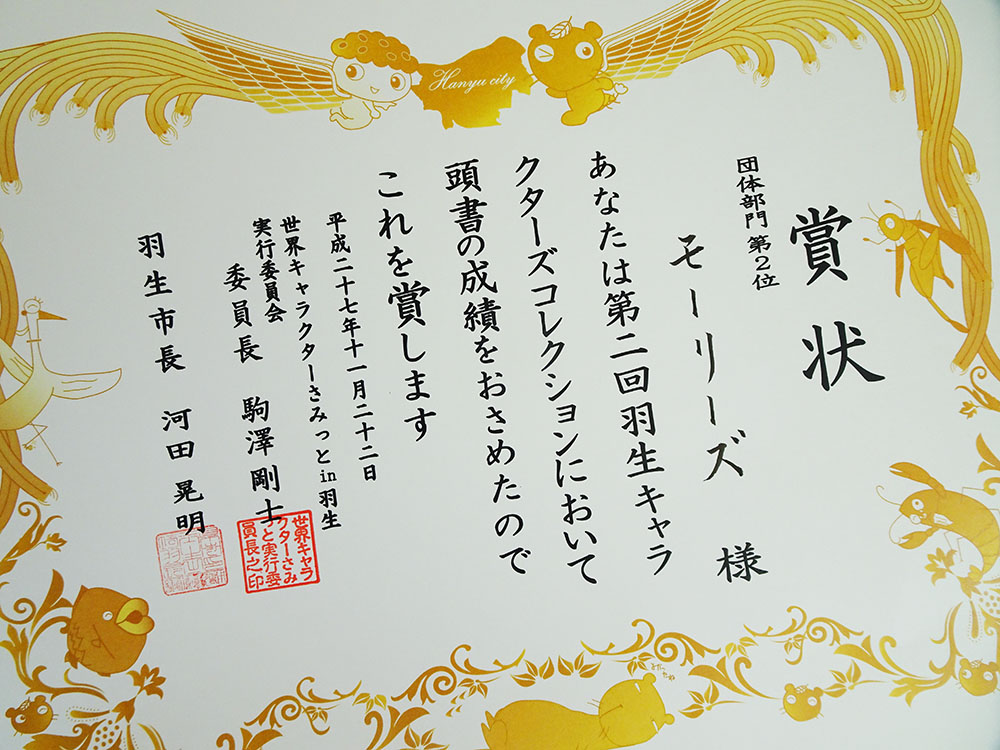 Hanyu city
賞状
団体部門 第2位
モーリーズ 様
あなたは第二回羽生キャラ
クターズコレクションにおいて
頭書の成績をおさめたので
これを賞します
平成二十七年十一月二十二日
世界キャラクターさみっとin羽生
実行委員会
委員長 駒澤剛士
羽生市長 河田晃明
世界キャラ
クターさみ
っと実行委
員長之印